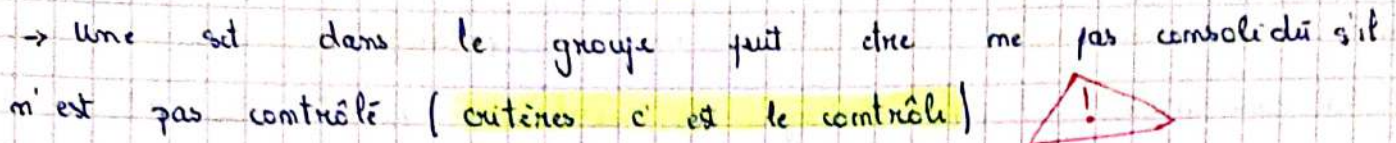 → Une sct dans le groupe peut etre me pas consolidé s'il
n'est pas contrôlé ( critères c'est le contrôle)
!